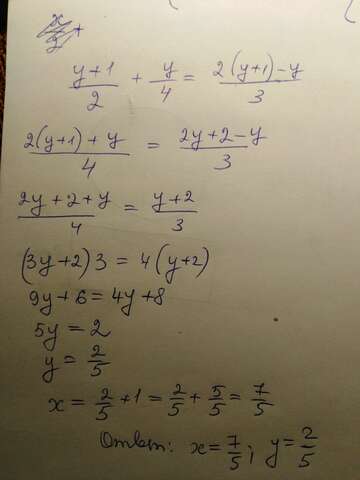 (y+1)/2 + y/4 = (2(y+1)-y)/3
(2(y+1)+y)/4 = (2y+2-y)/3
(2y+2+y)/4 = (y+2)/3
(3y+2)3 = 4(y+2)
9y+6 = 4y+8
5y = 2
y = 2/5
x = 2/5 + 1 = 2/5 + 5/5 = 7/5
Ответ: x = 7/5; y = 2/5